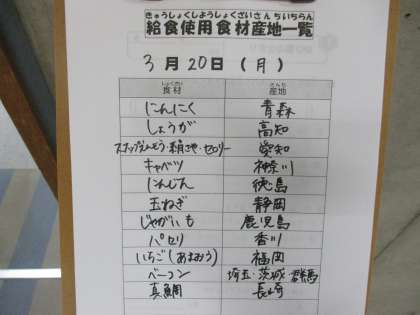 きゅうしょくしようしょくざいさんちいちらん
給食使用食材産地一覧
3月20日(月)
しょくざい さんち
食材 産地
にんにく 青森
しょうが 高知
スナップえんどう・セロリー 愛知
キャベツ 神奈川
にんじん 徳島
玉ねぎ 静岡
じゃがいも 鹿児島
パセリ 香川
いちご(あまおう) 福岡
ベーコン 埼玉・茨城・群馬
真鯛 長崎